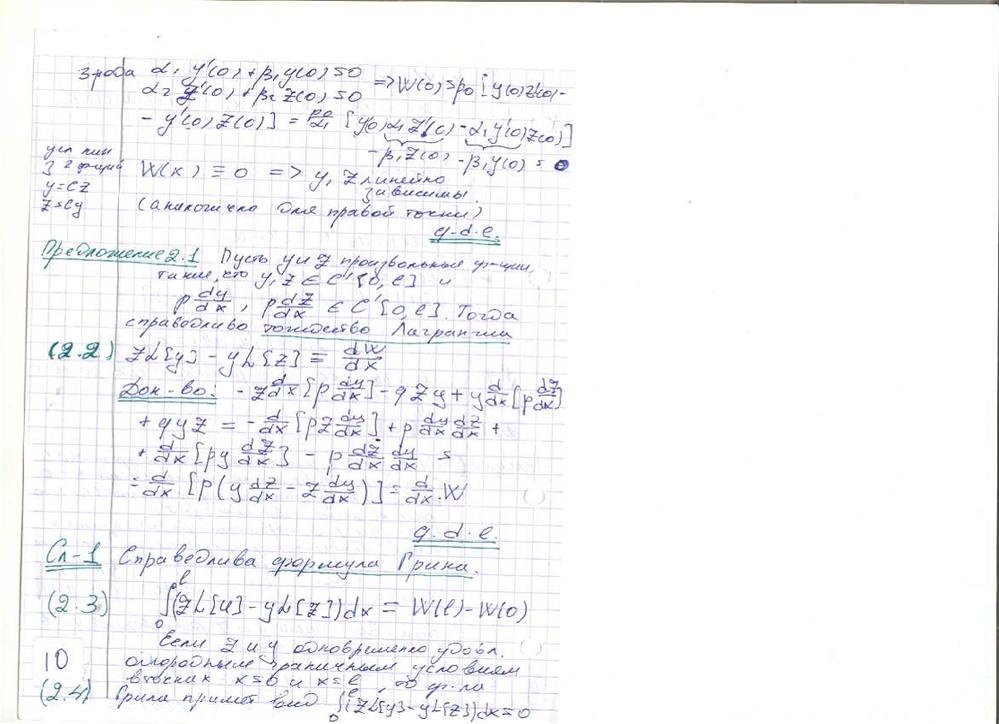 3 рода α₁ y'(0) + β₁ y(0) = 0 => W(0) = p₀ [y(0)z'(0) -
α₂ z'(0) + β₂ z(0) = 0
- y'(0) z(0)] = p₀/α₁ [y(0) α₁ z'(0) - α₁ y'(0) z(0)]
-β₁ z(0) -β₁ y(0) = 0
усл лин
З 2 функций
y = Cz
z = Cy
W(x) ≡ 0 => y, z линейно
зависимы.
(аналогично для правой точки)
q-d-e.
Предложение 2.1 Пусть y и z произвольные ф-ции,
такие, что y, z ∈ C'[0, l] и
p dy/dx, p dz/dx ∈ C'[0, l]. Тогда
справедливо тождество Лагранжа
(2.2) zL[y] - yL[z] = dW/dx
Док-во: - z d/dx [p dy/dx] - qzy + y d/dx [p dz/dx]
+ qyz = - d/dx [pz dy/dx] + p dy/dx dz/dx +
+ d/dx [py dz/dx] - p dz/dx dy/dx =
= d/dx [p(y dz/dx - z dy/dx)] = d/dx W
q.d.e.
Сл-1 Справедлива формула Грина.
(2.3) ∫₀ˡ (zL[u] - yL[z]) dx = W(l) - W(0)
Если z и y одновременно удовл.
однородным граничным условиям
в точках x=0 и x=l, то ф-ла
10
(2.4) Грина примет вид ∫₀ˡ (zL[y] - yL[z]) dx = 0